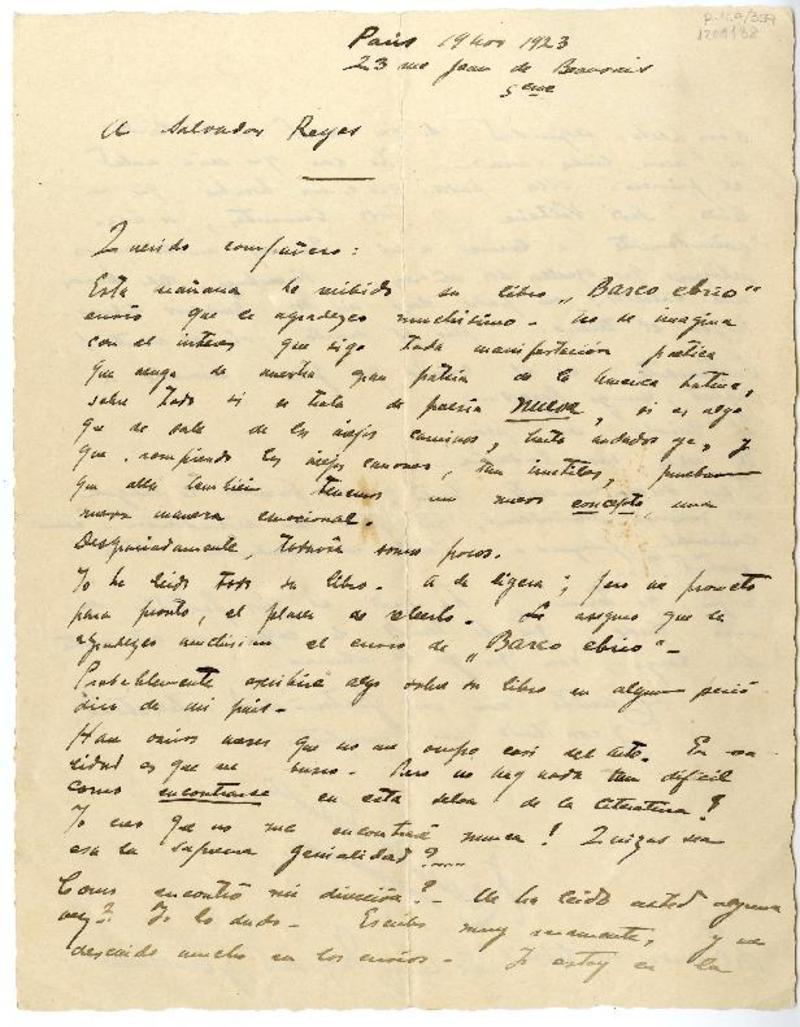 Paris 19 nov 1923
23 rue Jean de Beauvais
5eme
A Salvador Reyes
Querido compañero:
Esta mañana he recibido su libro „Barco ebrio"
envío que le agradezco muchísimo - No se imagina
con el interes que sigo toda manifestación poetica
que venga de nuestra gran patria de la America Latina,
sobre todo si se trata de poesía nueva, si es algo
que se sale de los viejos caminos, harto andados ya, y
que, rompiendo los viejos canones, tan inutiles, prueban
que alla tambien tenemos un nuevo concepto, una
nueva manera emocional.
Desgraciadamente, todavía somos pocos.
Yo he leido todo su libro - A la ligera; pero me prometo
para pronto, el placer de releerlo - Le aseguro que le
agradezco muchisimo el envio de „Barco ebrio" -
Probablemente escribiré algo sobre su libro en algun perió
dico de mi país -
Hace meses que no me ocupo casi del arte. En rea
lidad es que me busco - Pero no hay nada tan dificil
como encontrarse en esta selva de la literatura!
Yo creo que no me encontraré nunca! Quizas sea
esa la suprema genialidad?....
Como encontró mi dirección? - Me ha leido usted alguna
vez? Yo lo dudo - Escribo muy raramente, y me
descuido mucho en los envios - Yo estoy en la